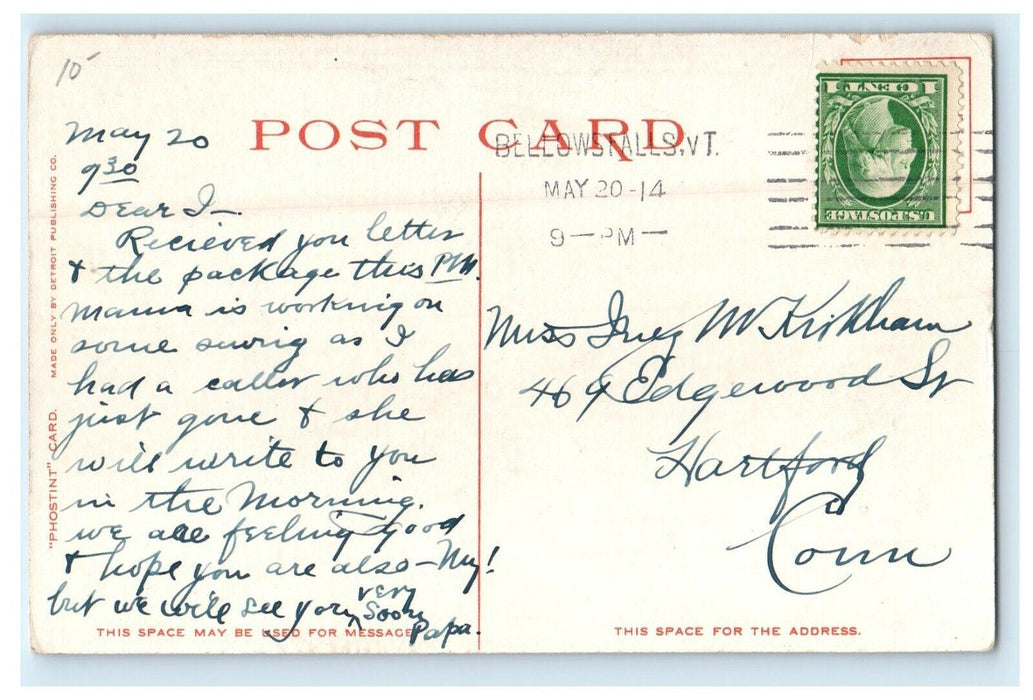 10
POST CARD
BELLOWS FALLS, VT.
MAY 20-14
9-PM-
1 CENT 1
U.S. POSTAGE
May 20
9 30
Dear I-
Recieved you letter
& the package this PM.
Mama is working on
some sewing as I
had a caller who has
just gone & she
will write to you
in the morning.
we all feeling good
& hope you are also - My!
but we will see you very soon
Papa.
Miss Inez M Kirkham
469 Edgewood St
Hartford
Conn
"PHOSTINT" CARD. MADE ONLY BY DETROIT PUBLISHING CO.
THIS SPACE MAY BE USED FOR MESSAGE
THIS SPACE FOR THE ADDRESS.